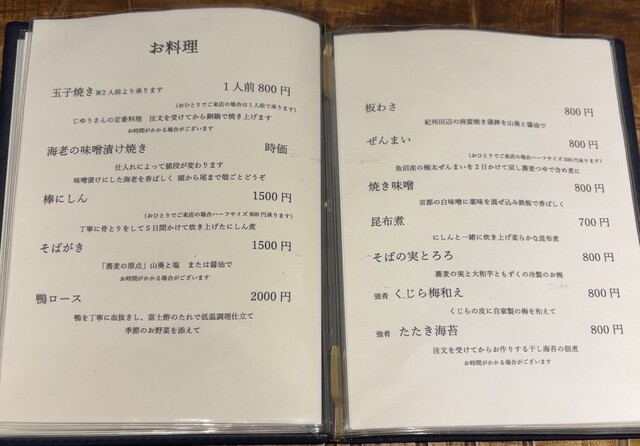 お料理
玉子焼き ※2人前より承ります 1人前 800円
(おひとりでご来店の場合は1人前で承ります)
じゆうさんの定番料理 注文を受けてから銅鍋で焼き上げます
お時間がかかる場合がございます
海老の味噌漬け焼き 時価
仕入れによって値段が変わります
味噌漬けにした海老を香ばしく 頭から尾まで殻ごとどうぞ
棒にしん 1500円
(おひとりでご来店の場合ハーフサイズ800円承ります)
丁寧に骨とりをして5日間かけて炊き上げたにしん煮
そばがき 1500円
「蕎麦の原点」山葵と塩 または醤油で
お時間がかかる場合がございます
鴨ロース 2000円
鴨を丁寧に血抜きし、富士酢のたれで低温調理仕立て
季節のお野菜を添えて
板わさ 800円
紀州田辺の南蛮焼き蒲鉾を山葵と醤油で
ぜんまい 800円
(おひとりでご来店の場合ハーフサイズ500円承ります)
魚沼産の極太ぜんまいを2日かけて戻し蕎麦つゆで含め煮に
焼き味噌 800円
京都の白味噌に薬味を混ぜ込み鉄板で香ばしく
昆布煮 700円
にしんと一緒に炊き上げ柔らかな昆布煮
そばの実とろろ 800円
蕎麦の実と大和芋ともずくの冷製のお椀
強肴 くじら梅和え 800円
くじらの皮に自家製の梅を和えて
強肴 たたき海苔 800円
注文を受けてからお作りする干し海苔の佃煮
お時間がかかる場合がございます